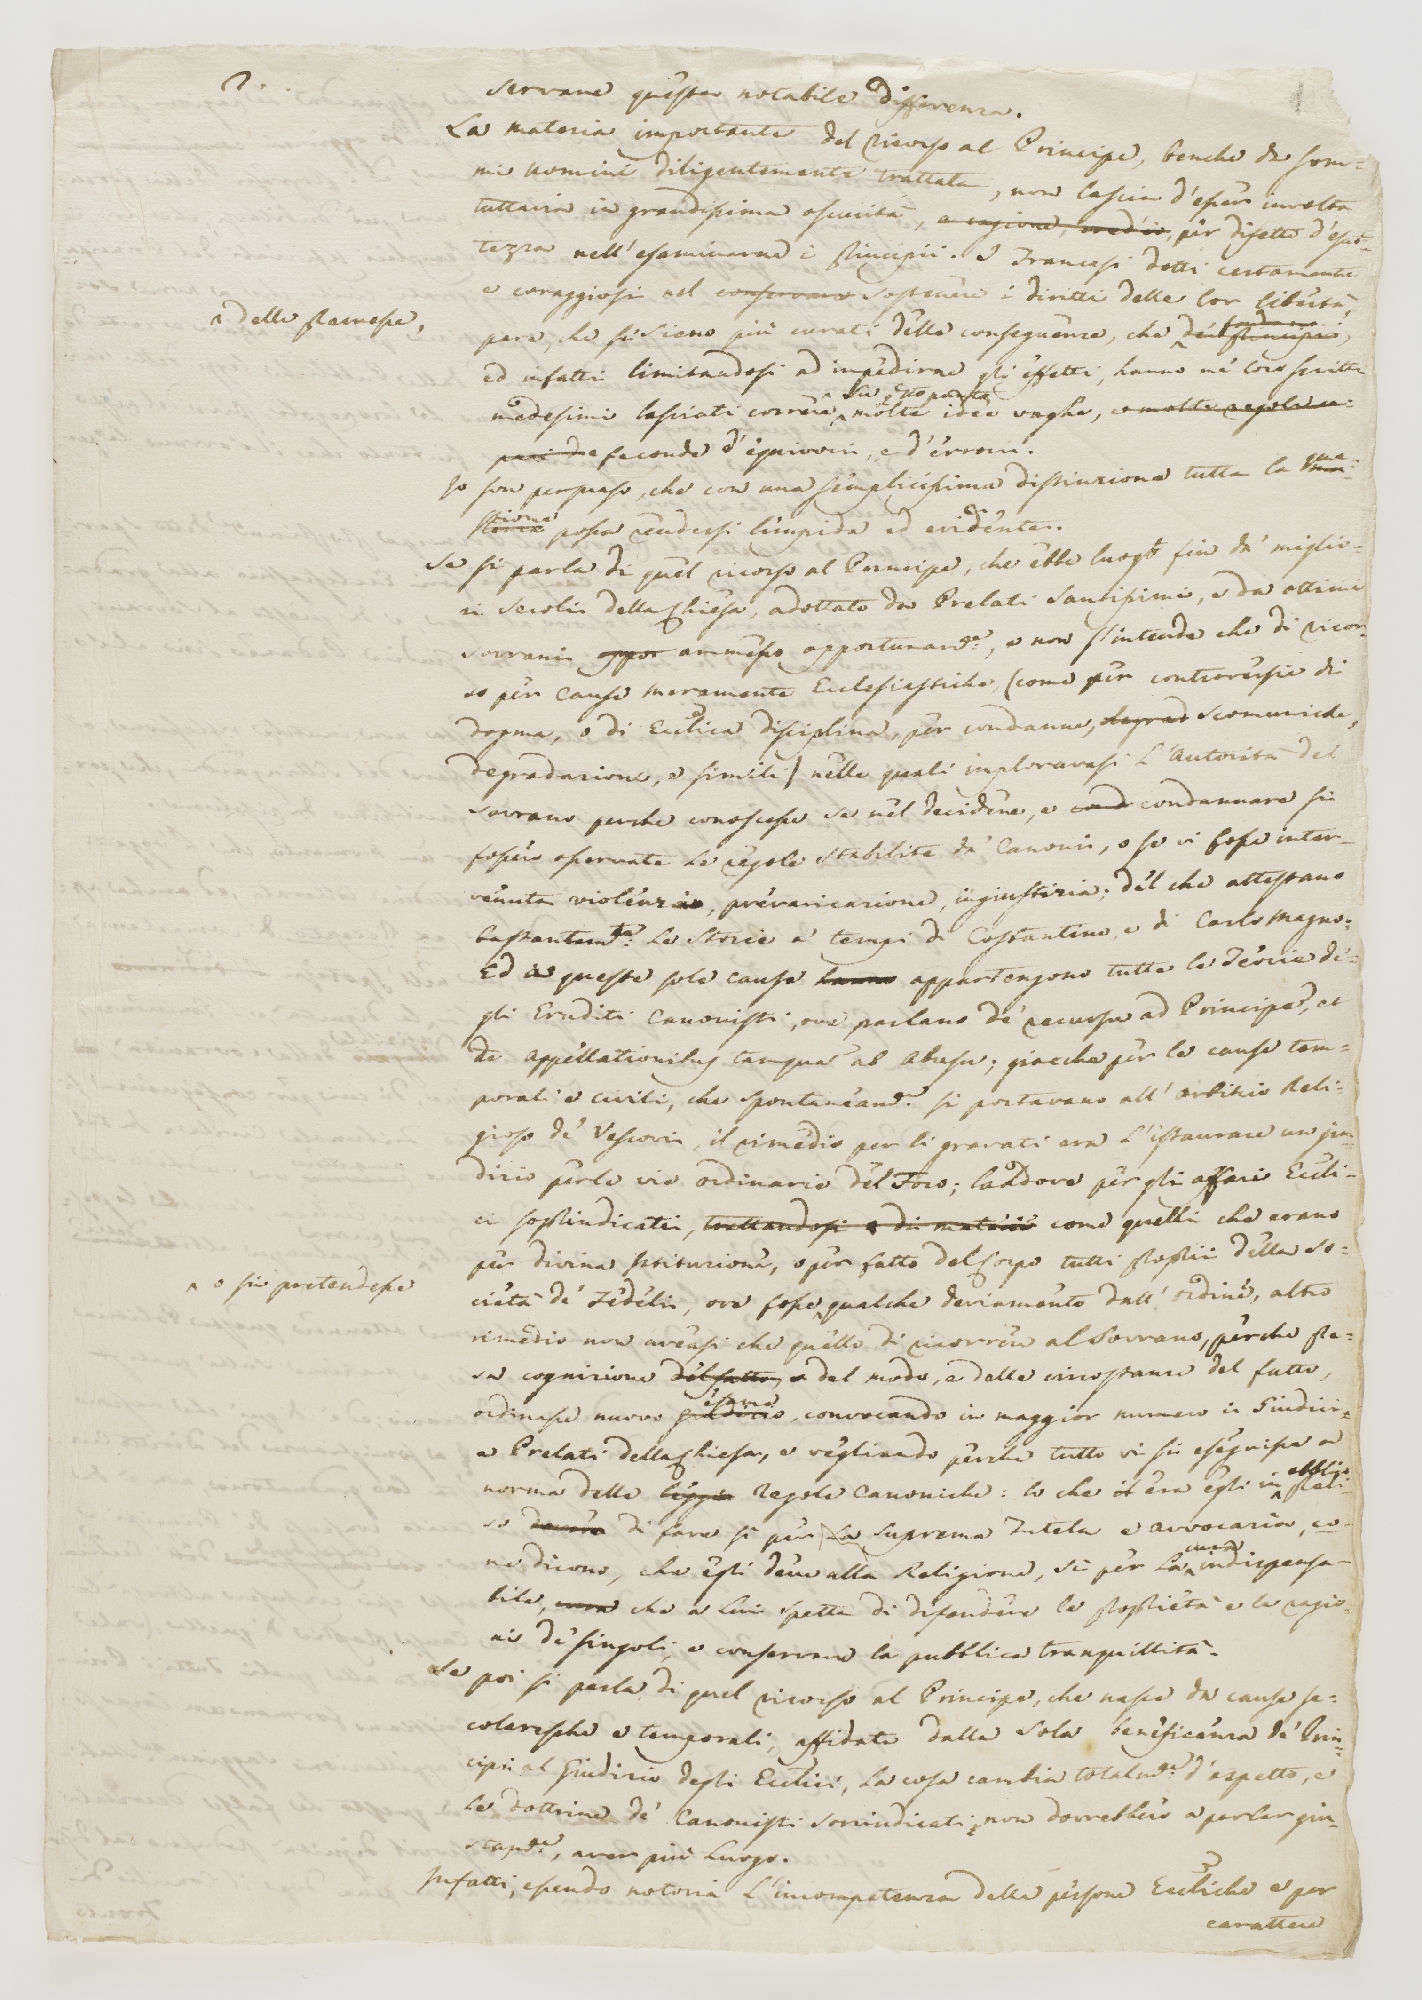 2.
servare questa notabile differenza.
La materia importante del ricorso al Principe, benche da som-
mi uomini diligentemente trattata, non lascia d'esser involta
tuttavia in grandissima oscurità, a cagione, cred'io, per difetto d'esat-
tezza nell'esaminarne i principii. I Francesi dotti certamente
e coraggiosi nel conservare sostenere i diritti delle lor libertà,
^ delle premesse,
pare, che si sieno più curati delle conseguenze, che ^
ed infatti limitandosi ad impedirne gli effetti, hanno ne' loro scritti
medesimi lasciati correre ^ molte idee vaghe, e molte regole ca-
paci di e feconde d'equivoci, e d'errori.
Io son persuaso, che con una semplicissima distinzione tutta la
possa rendersi limpida ed evidente.
Se si parla di quel ricorso al Principe, che ebbe luogo fin da' miglio-
ri secoli della Chiesa, adottato da Prelati Santissimi, e da ottimi
sovrani oppor ammesso opportunam.e, e non s'intende che di ricor-
so per cause meramente Ecclesiastiche, (come per controversie di
dogma, o di Eccl.ica disciplina, per condanne, degrad scomuniche,
degradazione, e simili) nelle quali imploravasi l'Autorità del
Sovrano perche conoscesse se nel decidere, e cond condannare si
fosser osservate le regole stabilite da' Canoni, o se vi fosse inter-
venuta violenza, prevaricazione, ingiustizia; del che attestano
bastantem.te le Storie a' tempi di Costantino, e di Carlo Magno.
Ed a queste sole cause hanno appartengono tutte le Teorie de-
gli Eruditi Canonisti, ove parlano de recursu ad Principem, et
de Appellationibus tamquam ab Abusu; giacche per le cause tem-
porali e civili, che spontaneam.e si portavano all'arbitrio Reli-
gioso de' Vescovi, il rimedio per li gravati era l'istaurare un giu-
dizio per le vie ordinarie del Foro; laddove per gli affari Eccl.i-
ci soprindicati, trattandosi di materie come quelli che erano
per divina Istituzione, o per fatto del Corpo tutti proprii della so-
^ o si pretendesse
cietà de' Fedeli, ove fosse ^ qualche deviamento dall'ordine, altro
rimedio non aveasi che quello di ricorrere al Sovrano, perche pre-
sa cognizione del fatto, e del modo, e delle circostanze del fatto,
esame
ordinasse nuovo giudizio, convocando in maggior numero i Giudici
e Prelati della Chiesa, e vegliando perche tutto vi si eseguisse a
norma delle leggi Regole Canoniche: lo che era egli
so di fare si per la suprema Tutela e avvocazia, co-
me dicono, che egli deve alla Religione, si per la ^ cura indispensa-
bile, cura che a lui spetta di difendere le proprietà e le ragio-
ni de' singoli, e conservare la pubblica tranquillità.
Se poi si parla di quel ricorso al Principe, che nasce da cause se-
colaresche e temporali, affidate dalla sola beneficenza de' Prin-
cipi al Giudizio degli Eccl.ici, la cosa cambia totalm.e d'aspetto, e
le dottrine de' Canonisti sovrindicati, non dovrebbero a parlar giu-
stam.e, aver più luogo.
Infatti, essendo notoria l'incompetenza delle persone Eccl.iche e per
carattere